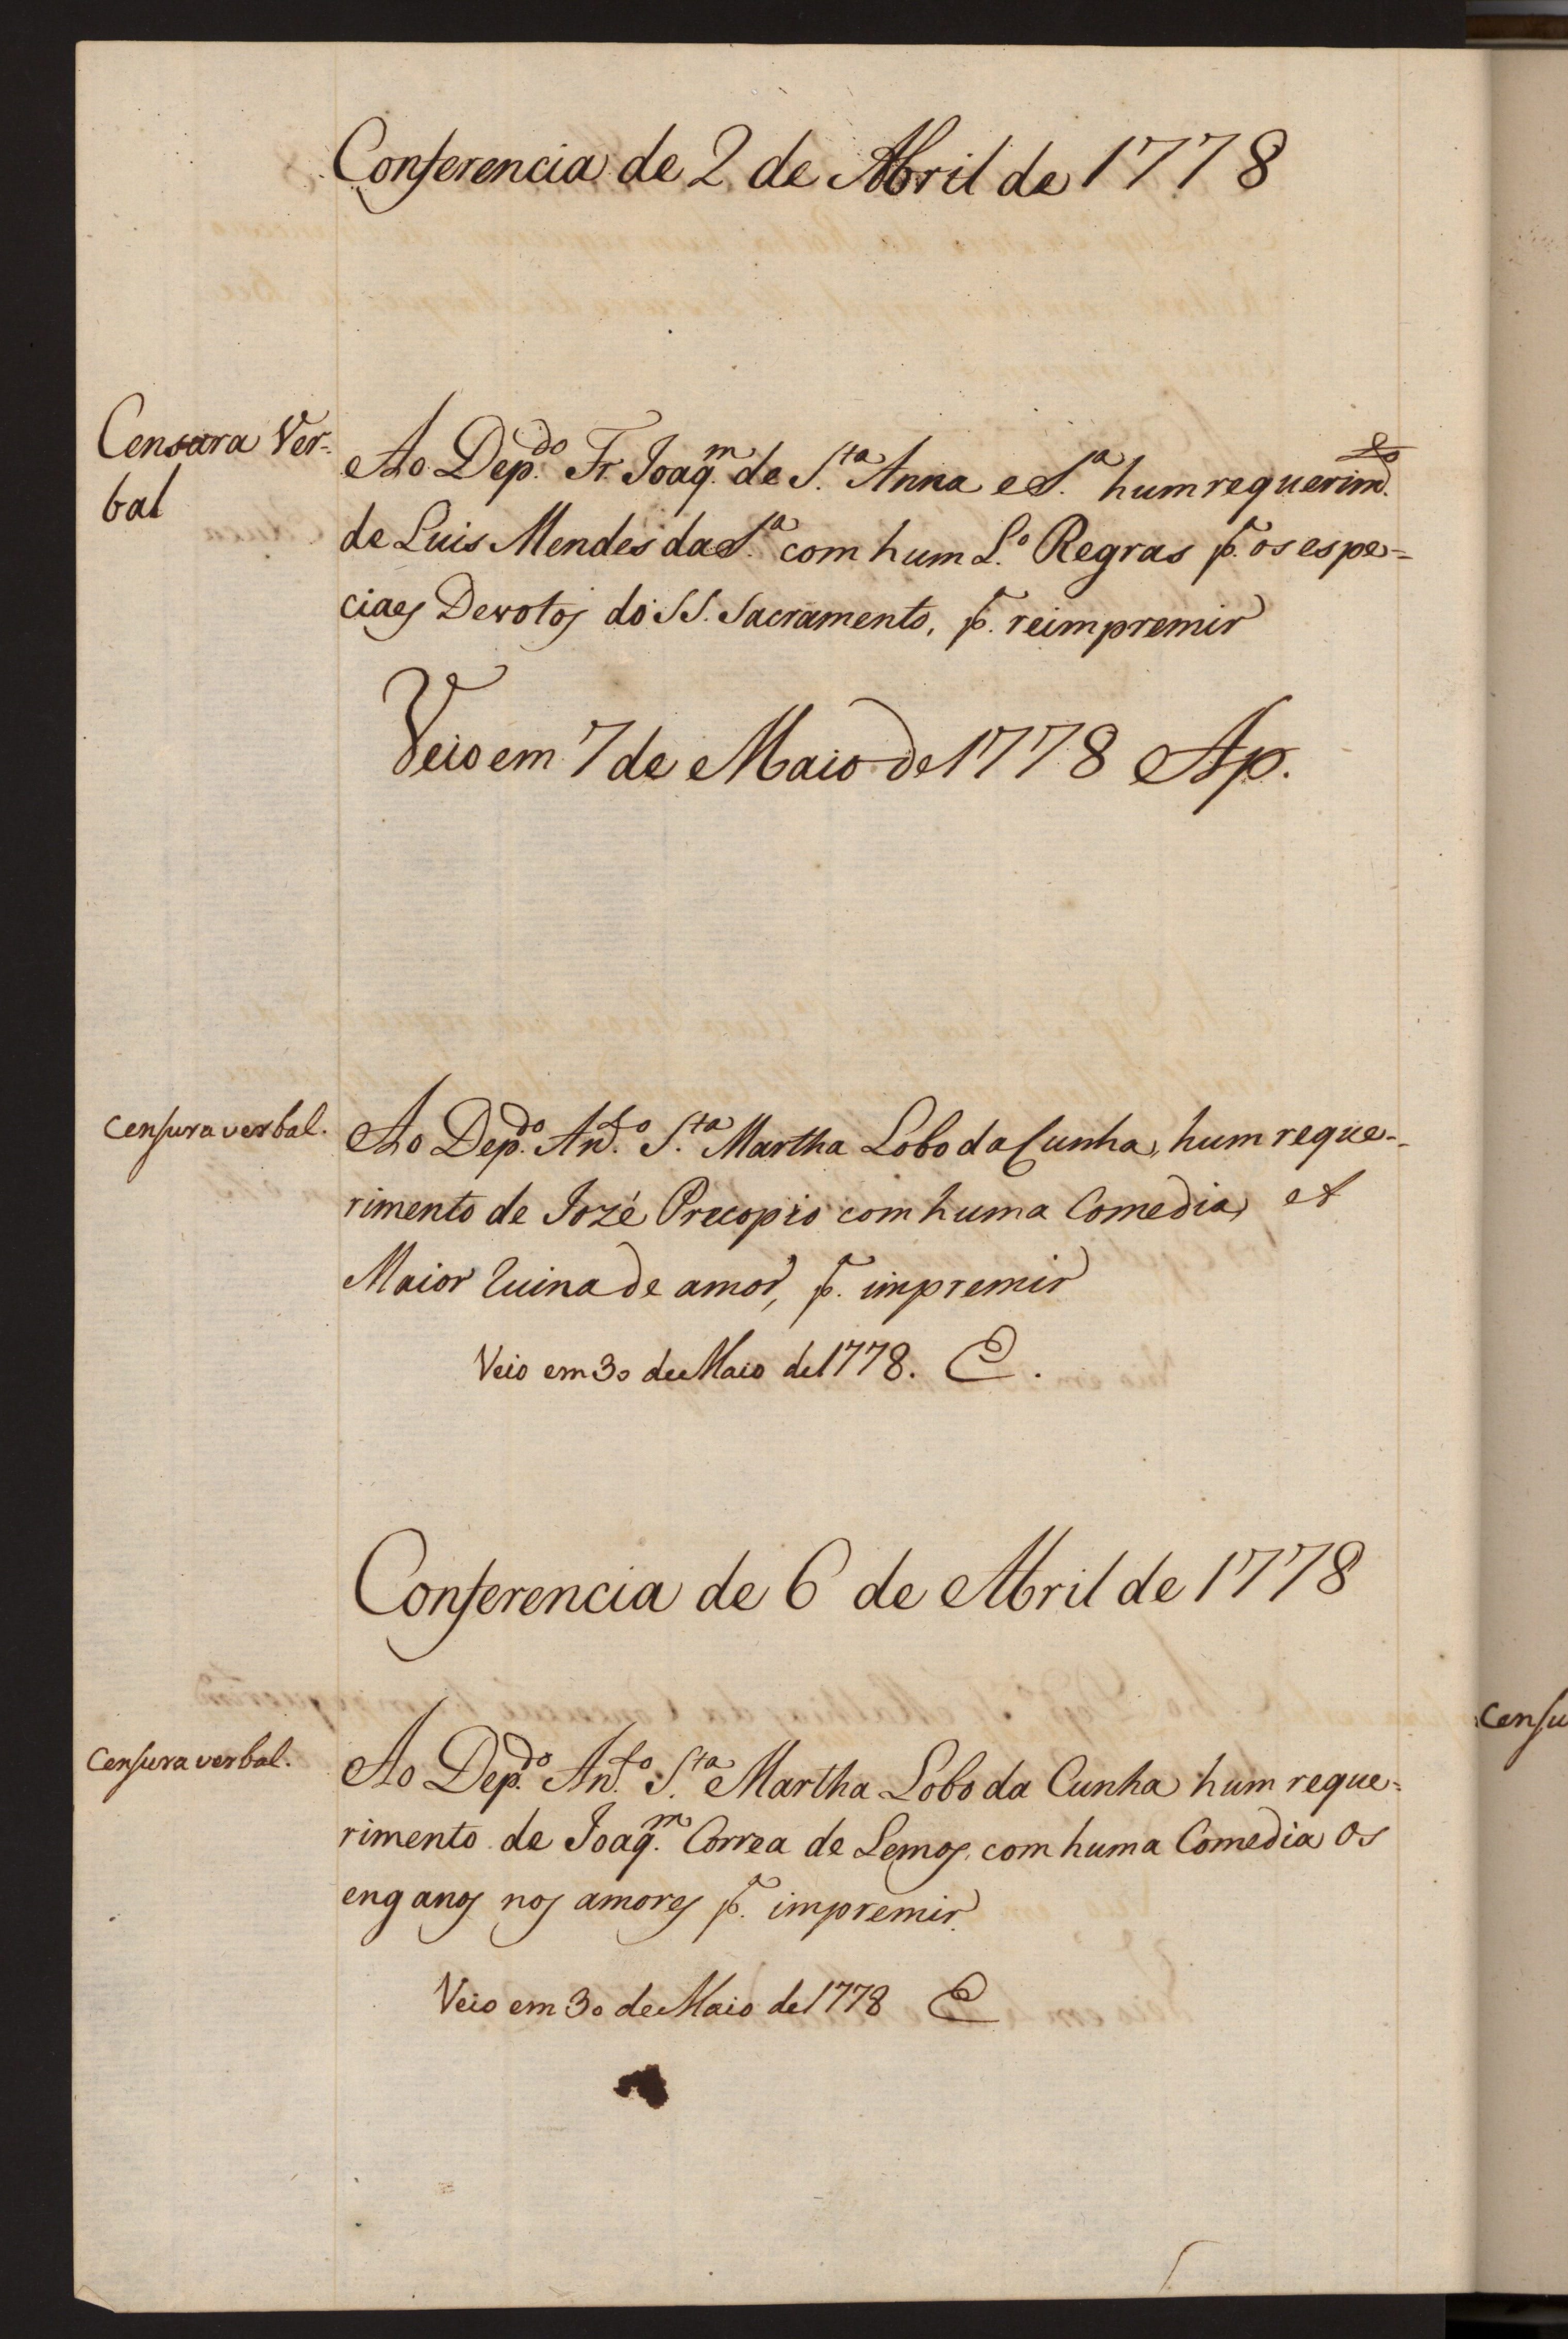 Conferencia de 2 de Abril de 1778
Censura Ver-
bal
Ao Dep.do Fr. Joaq.m de S.ta Anna e S.a hum requerim.to
de Luis Mendes da S.a com hum L.o Regras p.a os espe=
ciaes Devotos do SS. Sacramento, p.a reimpremir
Veio em 7 de Maio de 1778 Ap.
Censura verbal.
Ao Dep.do Ant.o S.ta Martha Lobo da Cunha, hum reque-
rimento de Jozé Precopio com huma Comedia, A
Maior ruina de amor, p.a impremir
Veio em 30 de Maio de 1778. E.
Conferencia de 6 de Abril de 1778
Censura verbal.
Ao Dep.do Ant.o S.ta Martha Lobo da Cunha hum reque=
rimento de Joaq.m Correa de Lemos, com huma Comedia Os
enganos nos amores p.a impremir.
Veio em 30 de Maio de 1778 E
Censu